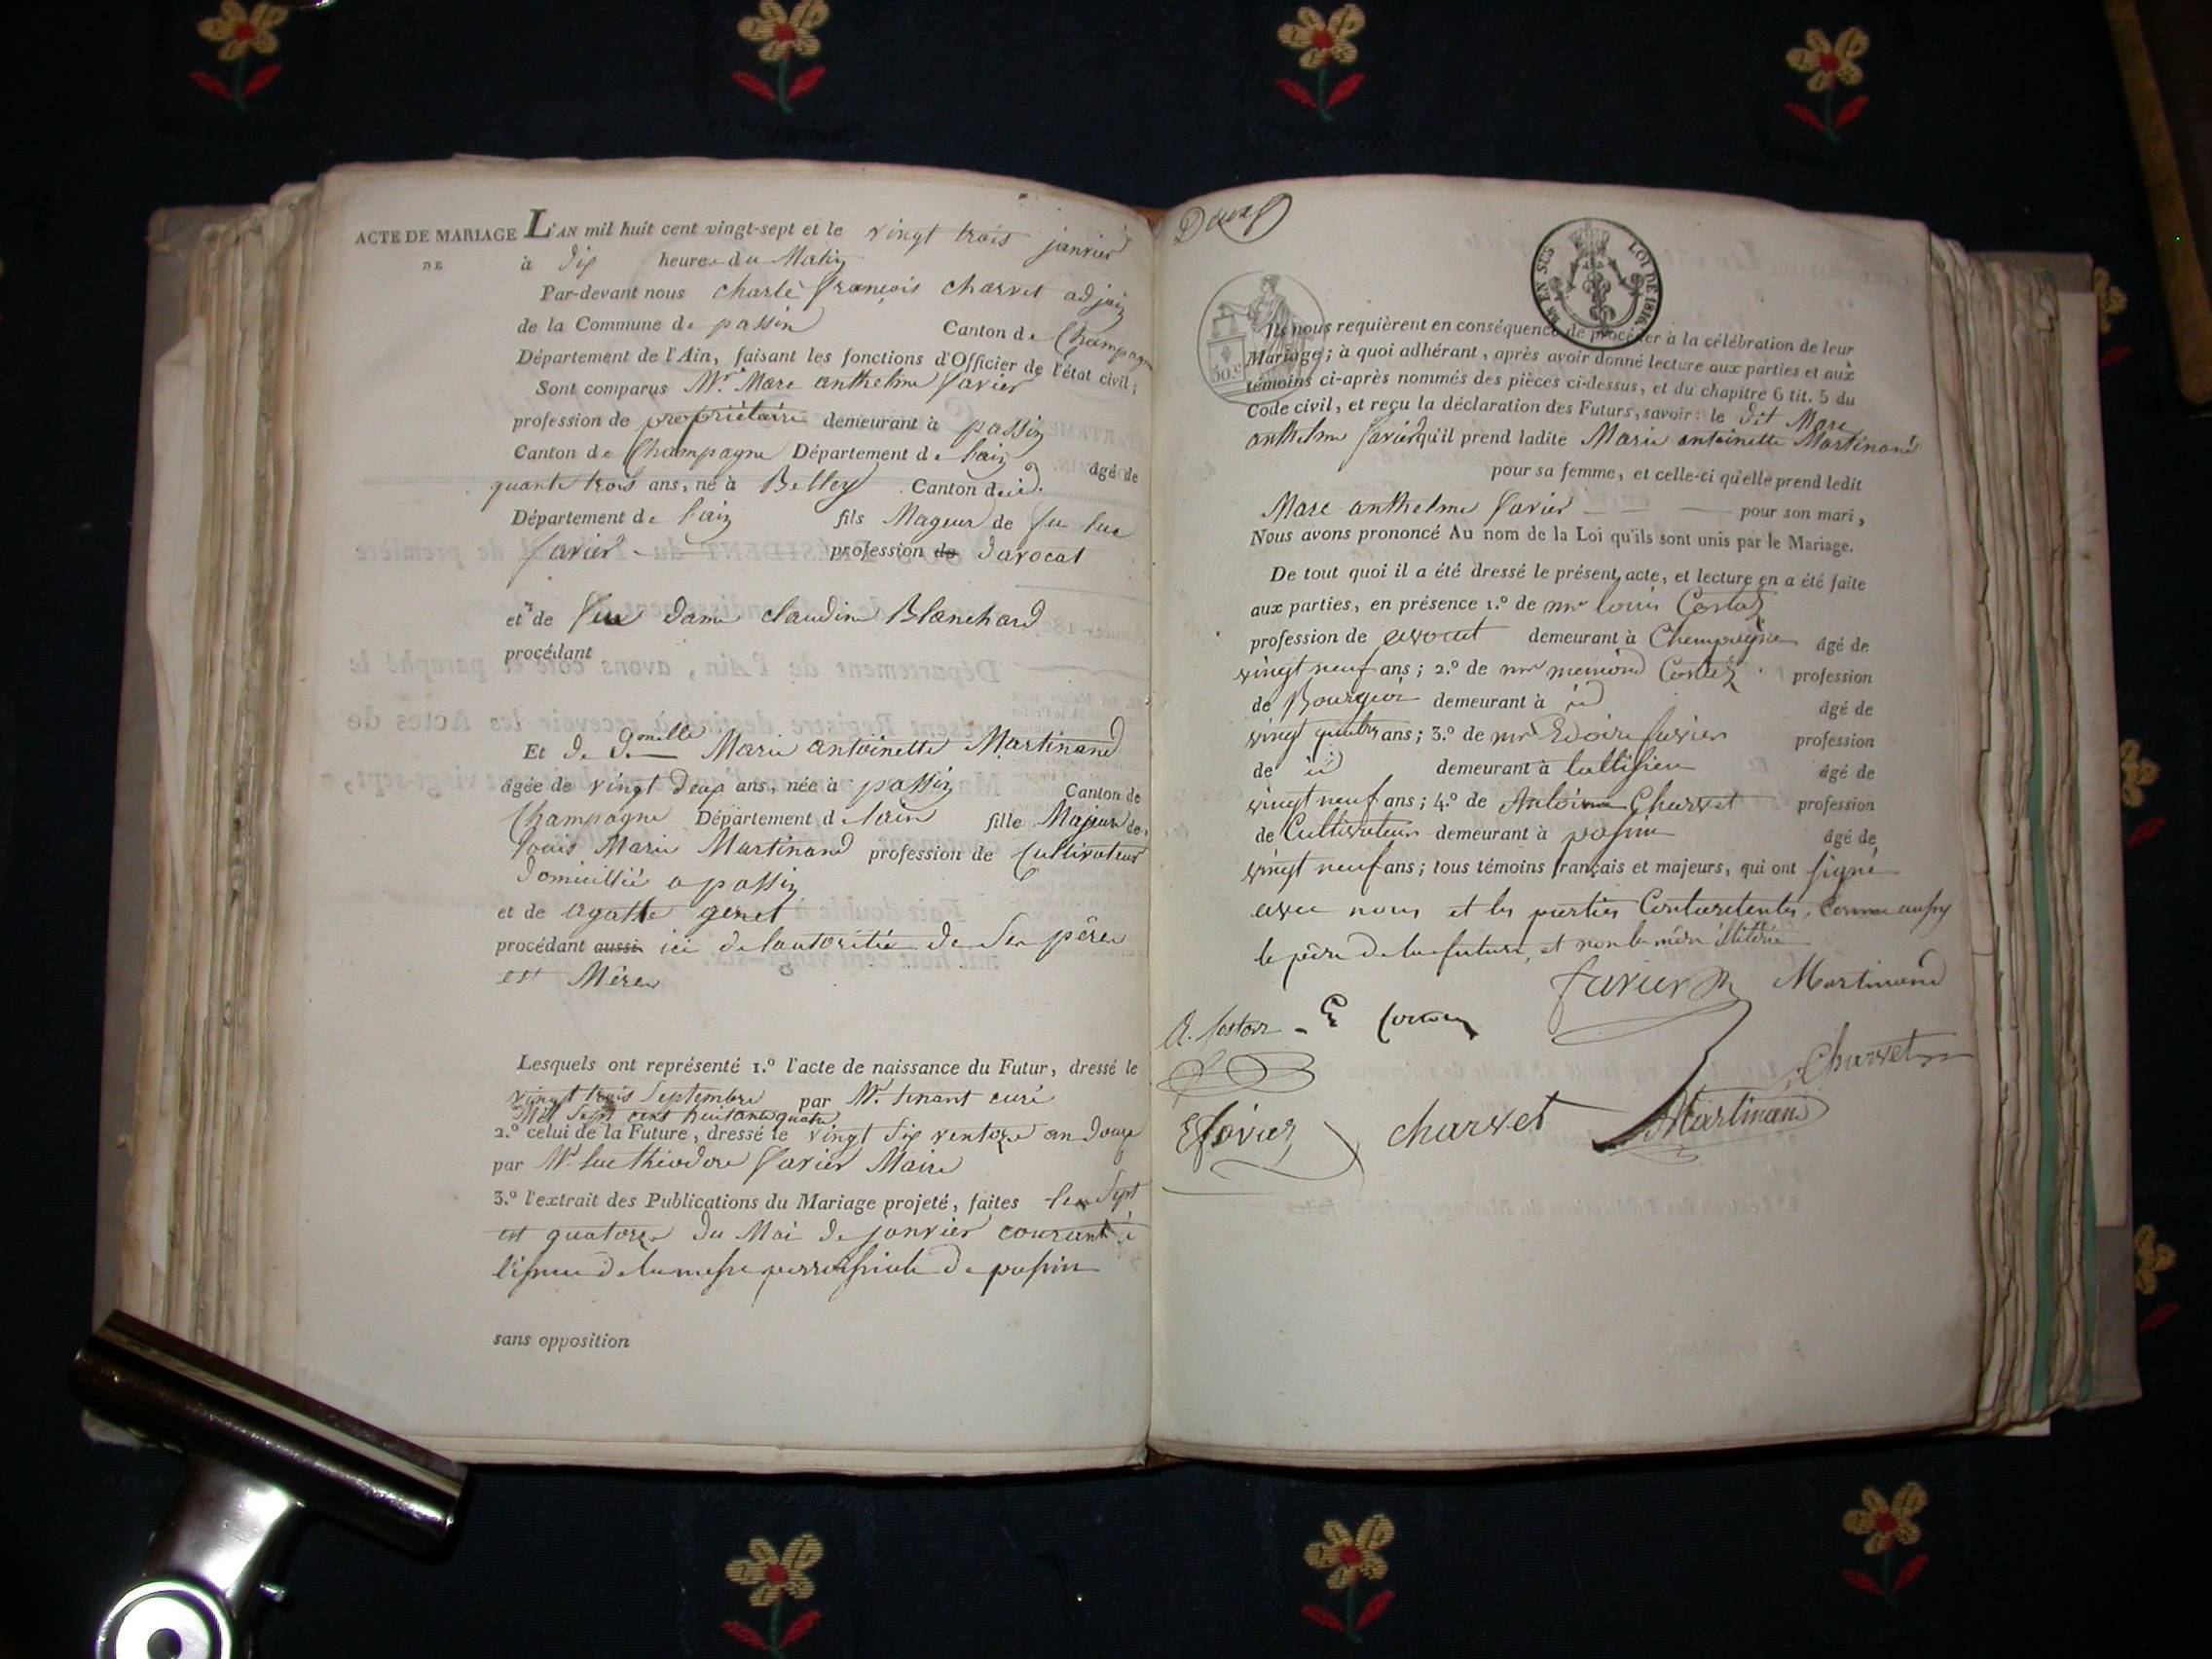 ACTE DE MARIAGE
DE
L'AN mil huit cent vingt-sept et le vingt trois janvier
à dix heures du Matin
Par-devant nous charle françois charvet adjoin
de la Commune de passin Canton de Champagne
Département de l'Ain, faisant les fonctions d'Officier de l'état civil;
Sont comparus Mr. Marc anthelme favier
profession de propriétaire demeurant à passin
Canton de Champagne Département de lain âgé de
quante trois ans, né à Belley Canton de id.
Département de lain fils Mageur de feu luc
favier profession de davocat
et de feue dame claudine Blanchard
procédant
Et de donelle Marie antoinette Martinand
âgée de vingt deux ans, née à passin Canton de
Champagne Département d lain fille Majeure de
louis Marie Martinand profession de Cultivateur
domicillié a passin
et de agathe genet
procédant aussi ici de lautoritée de Ses pére
et Mére
Lesquels ont représenté 1.º l'acte de naissance du Futur, dressé le
vingt trois Septembre par Mr. tenant curé
Mil Sept cent huitante quatre
2.º celui de la Future, dressé le vingt Six ventoze an douze
par Mr. luc théodore favier Maire
3.º l'extrait des Publications du Mariage projeté, faites les Sept
et quatorze du Moi de janvier courant à
l'issue de la messe parroissiale de passin
sans opposition
Deux
50.c
EN SUS
LOI DE 1816
Ils nous requièrent en conséquence de procéder à la célébration de leur
Mariage; à quoi adhérant, après avoir donné lecture aux parties et aux
témoins ci-après nommés des pièces ci-dessus, et du chapitre 6 tit. 5 du
Code civil, et reçu la déclaration des Futurs, savoir: le dit Marc
anthelme favier qu'il prend ladite Marie antoinette Martinand
pour sa femme, et celle-ci qu'elle prend ledit
Marc anthelme favier pour son mari,
Nous avons prononcé Au nom de la Loi qu'ils sont unis par le Mariage.
De tout quoi il a été dressé le présent acte, et lecture en a été faite
aux parties, en présence 1.º de mr louis Costaz
profession de avocat demeurant à Champagne âgé de
vingt neuf ans; 2.º de mr Costaz profession
de Bourgeois demeurant à id âgé de
vingt quatre ans; 3.º de mr favier profession
de id demeurant à âgé de
vingt neuf ans; 4.º de Antoine Charvet profession
de Cultivateur demeurant à passin âgé de
vingt neuf ans; tous témoins français et majeurs, qui ont signé
avec nous et les parties Contractentes, comme aussy
le père de la future, et non la mère illitérée
favier Martinand
Costaz
Charvet
E favier charvet Martinand